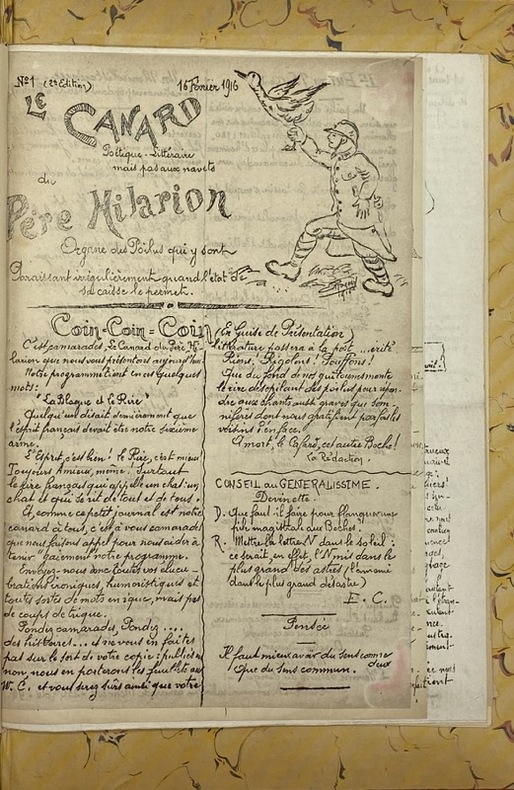 No 1 (2e Edition)
16 Février 1916
LE
CANARD
Poëtique - Littéraire
mais pas aux navets
du
Père Hilarion
Organe des Poilus qui y sont
Paraissant irrégulièrement quand l'état de
sa caisse le permet.
Coin-Coin=Coin (En Guise de Présentation)
C'est camarades, Le Canard du Père Hi-
larion que nous vous présentons aujourd'hui
Notre programme tient en ces quelques
mots:
"La Blague et le Rire"
Quelqu'un disait dernièrement que
l'esprit français devait être notre sixième
arme.
L'Esprit, c'est bien! le Rire, c'est mieux
Toujours Amieux, même. Surtout
le rire français qui appelle un chat: un
chat et qui se rit de tout et de tous.
Et, comme ce petit journal est notre
canard à tous, c'est à vous camarades
que nous faisons appel pour nous aider à
tenir "gaiement" notre programme.
Envoyez-nous donc toutes vos élucu-
brations ironiques, humoristiques et
toutes sortes de mots en ique, mais pas
de coups de trique.
Pondez camarades, Pondez ....
des histoires... et ne vous en faites
pas sur le sort de votre copie: publiées ou
non nous en porterons les feuillets aux
W.C. et vous serez sûrs ainsi que votre
littérature passera à la post ...érité
Rions! Rigolons! Pouffons!
Que du fond de nos
le rire désopilant des poilus pour répon-
dre aux chants aussi graves que som-
nifères dont nous gratifient parfois les
voisins d'en face.
A mort, le Cafard, cet autre Boche!
La Rédaction.
CONSEIL au GENERALISSIME.
Devinette.
D. Que faut-il faire pour flanquer une
pile magistrale aux Boches.
R. Mettre la lettre N dans le soleil:
ce serait, en effet, l'N mis dans le
plus grand des astres (l'ennemi
dans le plus grand désastre)
E. C.
Pensée
Il faut mieux avoir du sens comme deux
Que du sens commun.